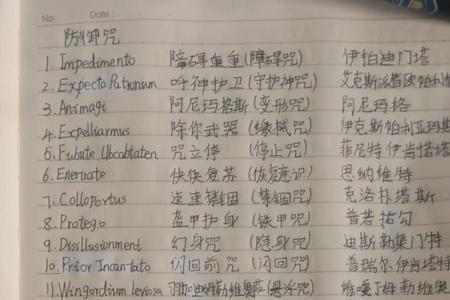 No: Date:
防御咒
1. Impedimento 障碍重重(障碍咒) 伊帕迪门塔
2. Expecto Patronum 呼神护卫(守护神咒) 艾克斯派克欧帕利
3. Animagi 阿尼玛格斯(变形咒) 阿尼玛格
4. Expelliarmus 除你武器(缴械咒) 伊克斯帕利亚玛斯
5. 咒立停(停止咒) 菲尼特伊肯塔塔
6. Eneruate 快快复苏(恢复意识) 恩纳维特
7. Colloportus 速速禁锢(禁锢咒) 克洛朴塔斯
8. Protego 盔甲护身(铁甲咒) 普若
9. Disillusionment 幻身咒(隐身咒) 迪斯勒集门特
10. Prior Incantato 闪回前咒(闪回咒) 普瑞尔伊肯塔特
11. Wingardium leviosa